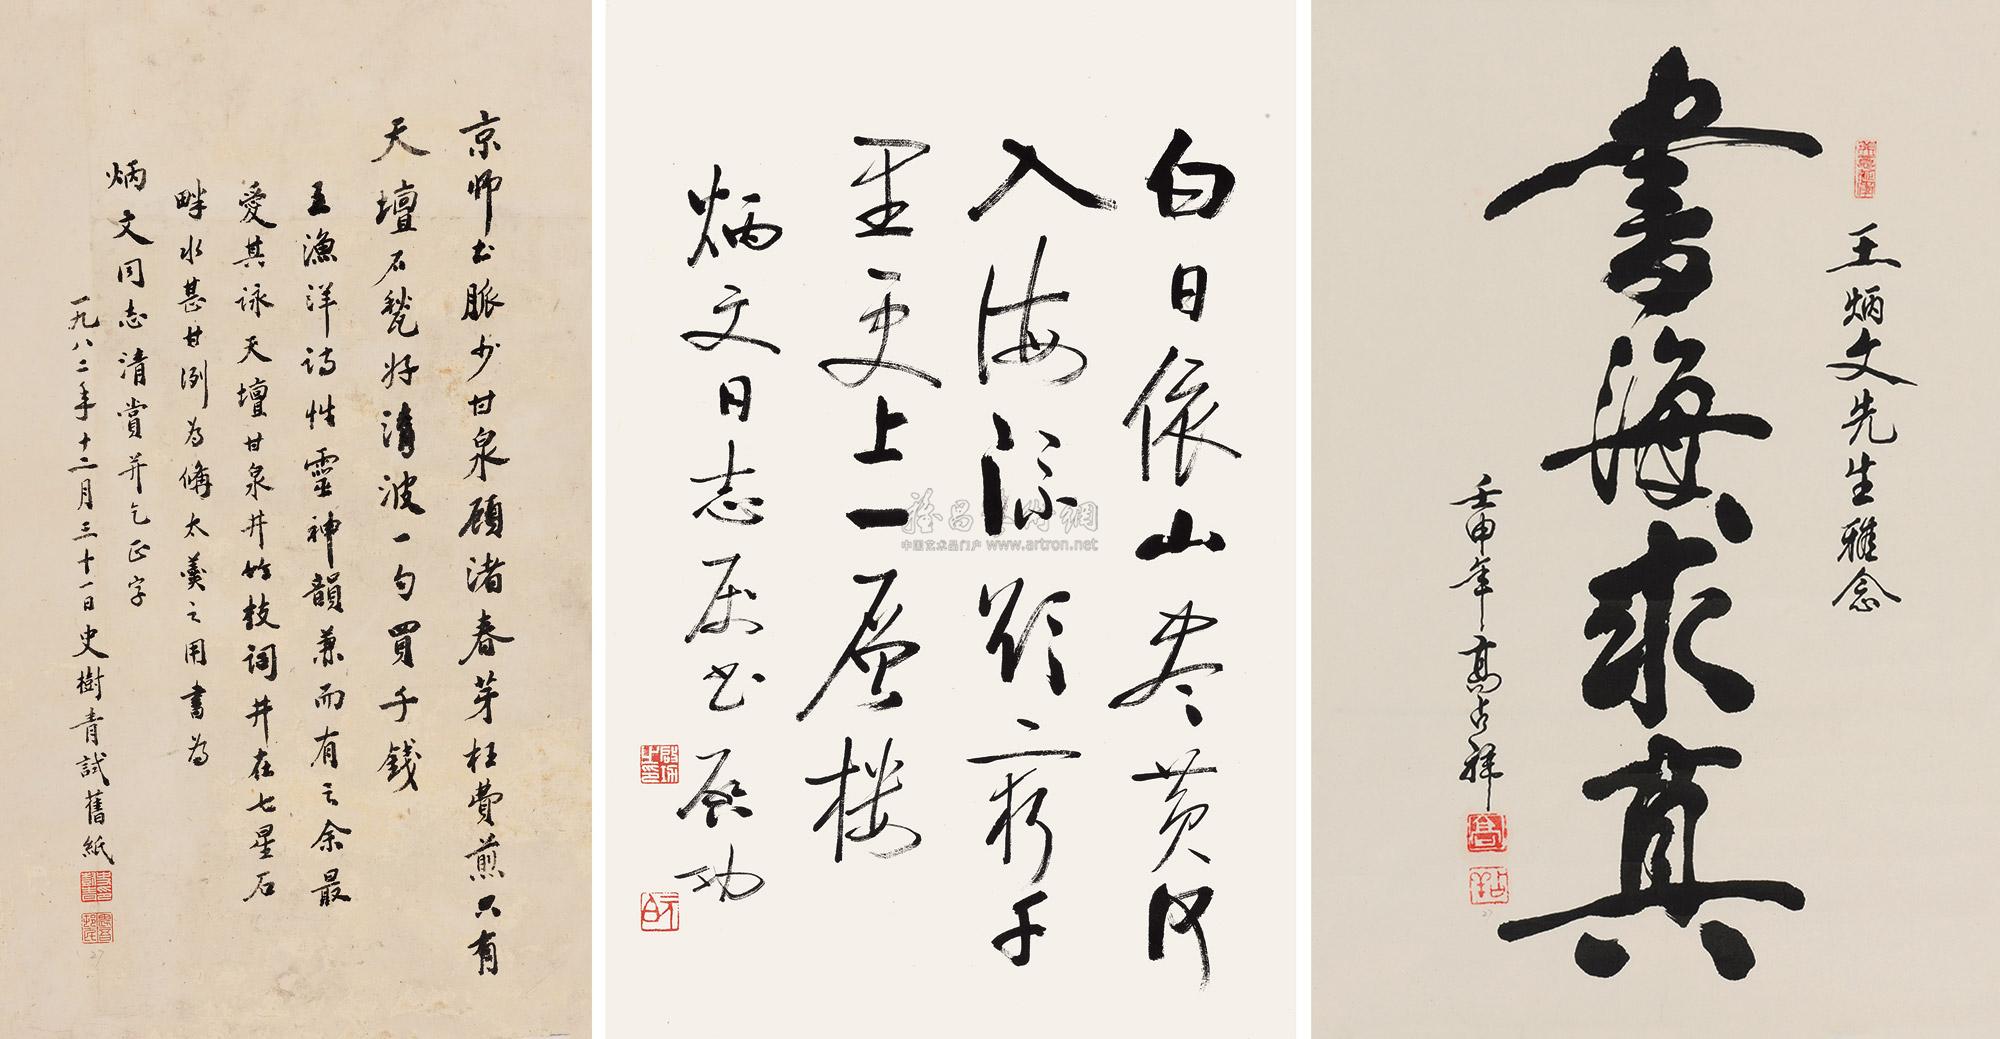 京师土脈少甘泉顧渚春芽枉費煎只有
天壇石甃好清波一勺買千錢
王漁洋詩性靈神韻兼而有之余最
愛其詠天壇甘泉井竹枝詞井在七星石
畔水甚甘冽為備太羹之用書為
炳文同志清賞并乞正字
一九八二年十二月三十一日史樹青試舊紙
白日依山尽黄河
入海流欲穷千
里更上一层楼
炳文同志属书启功
啓功之印
元白
王炳文先生雅念
書海求真
壬申年高占祥
高
占祥
雅昌艺术網
中国艺术品门户 www.artron.net